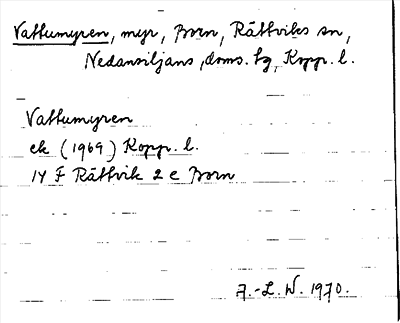 Vattumyren, myr, Born, Rättviks sn,
Nedansiljans doms. tg, Kopp. l.
Vattumyren
ek (1969) Kopp. l.
14 F Rättvik 2 e Born
A.-L. W. 1970.